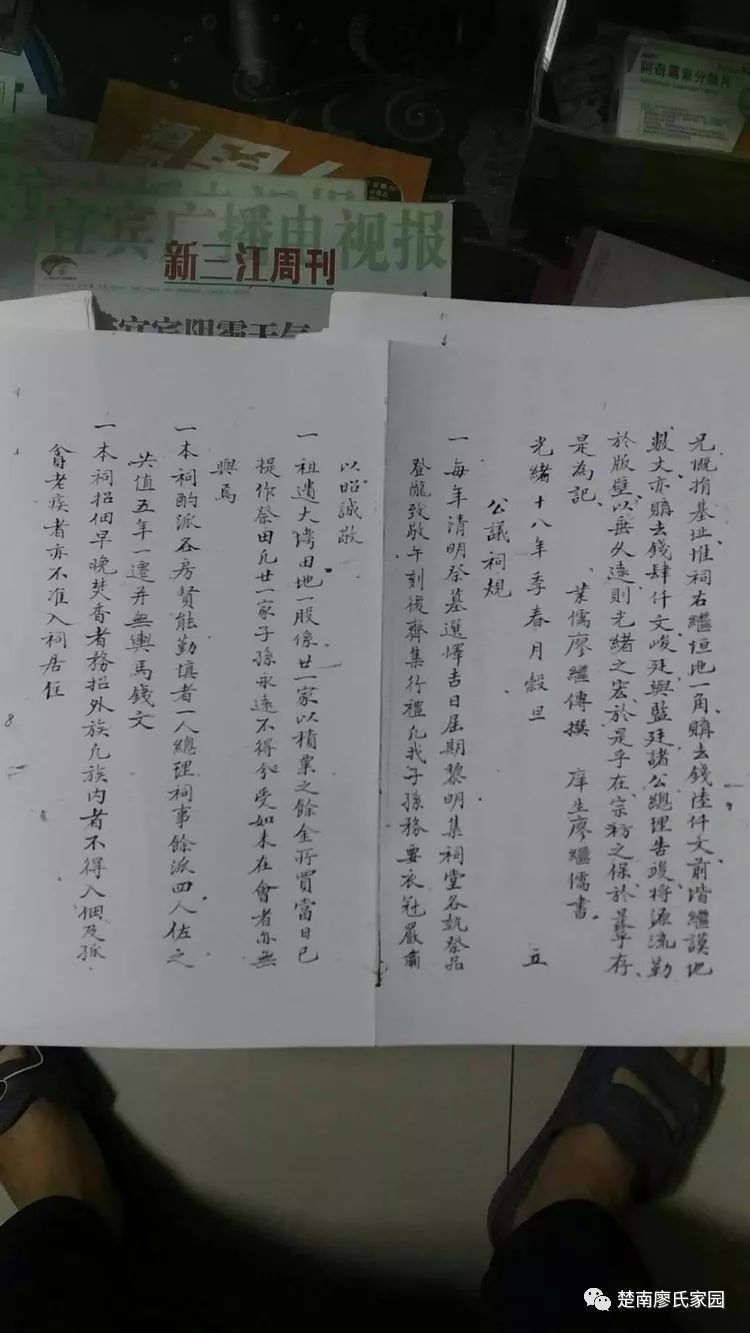 阿奇霉素分散片
宜宾广播电视报
新三江周刊
宜宾阴霾天气
兄慨捐基址堆祠右繼垣地一角購去錢陸仟文前堦繼謨地
數丈亦購去錢肆仟文峻廷與監廷諸公總理告竣將源流勒
於版壁以垂久遠則光緒之宏於是乎在宗祊之保於是乎存
是為記 業儒廖繼傳撰 庠生廖繼儒書
光緒十八年季春月穀旦 立
公議祠規
一每年清明祭墓選擇吉日屆期黎明集祠堂各執祭品
登隴致敬午刻復齊集行禮凡我子孫務要衣冠嚴肅
以昭誠敬
一祖遺大灣田地一股係廿一家以積累之餘金所買當日已
提作祭田凡廿一家子孫永遠不得分受如未在會者亦無
與焉
一本祠酌派各房賢能勤慎者一人總理祠事餘派四人佐之
共值五年一遷并無輿馬錢文
一本祠招佃早晚焚香者務招外族凡族内者不得入佃及孤
貧老疾者亦不准入祠居住
8
楚南廖氏家园